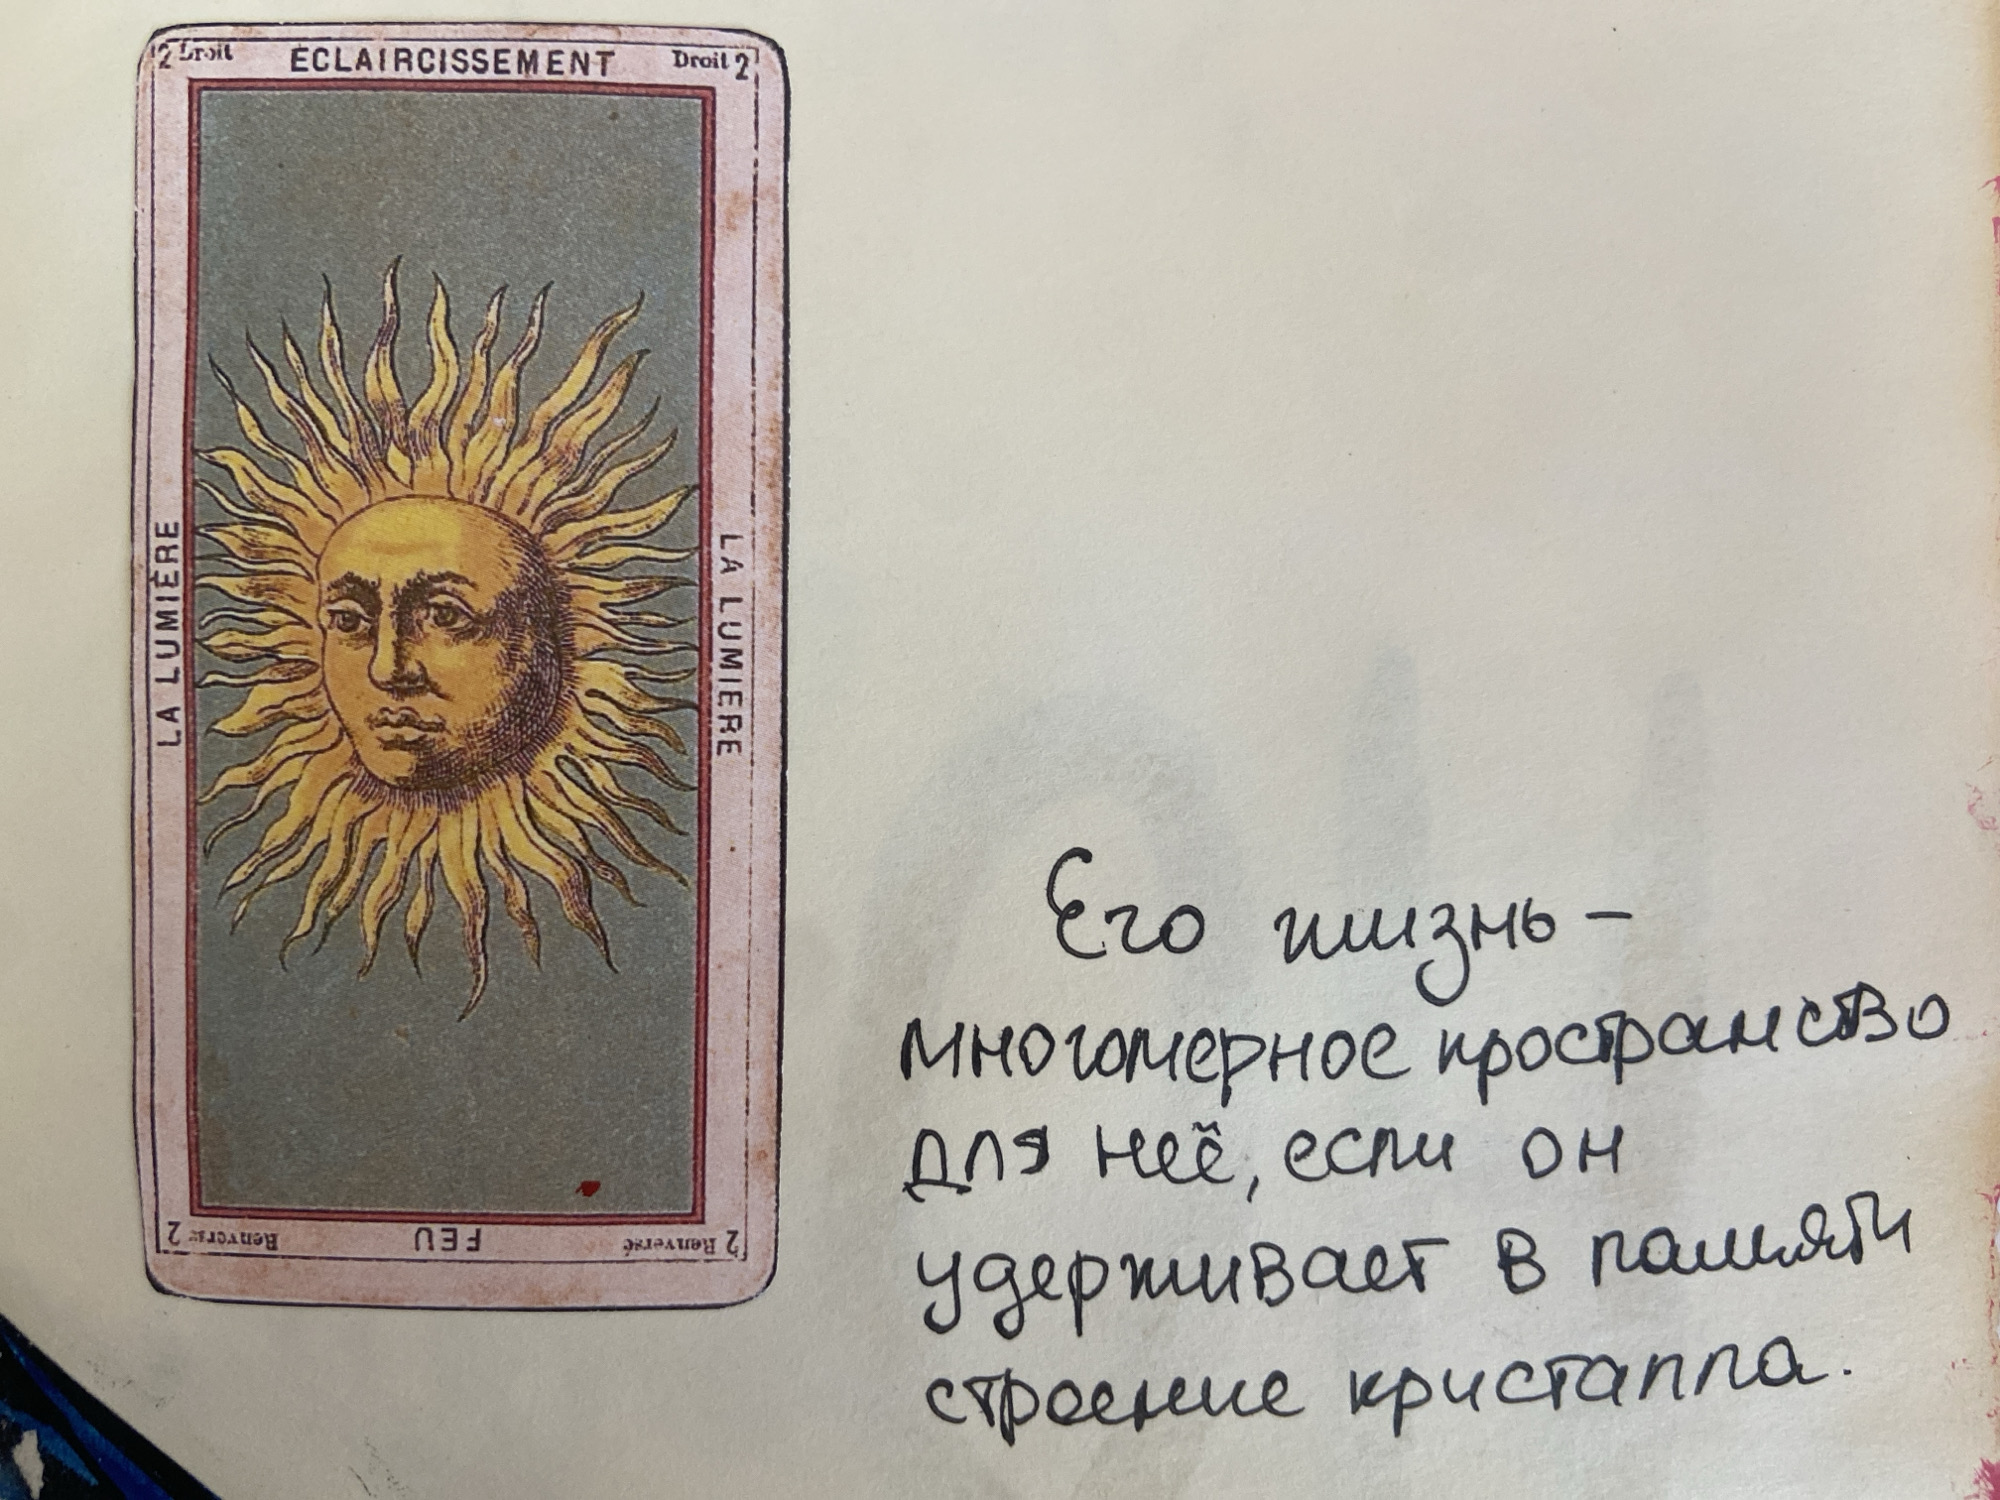 2 Droit ÉCLAIRCISSEMENT Droit 2
LA LUMIÈRE
LA LUMIERE
2 Renversé FEU Renversé 2
Его жизнь –
многомерное пространство
для неё, если он
удерживает в памяти
строение кристалла.